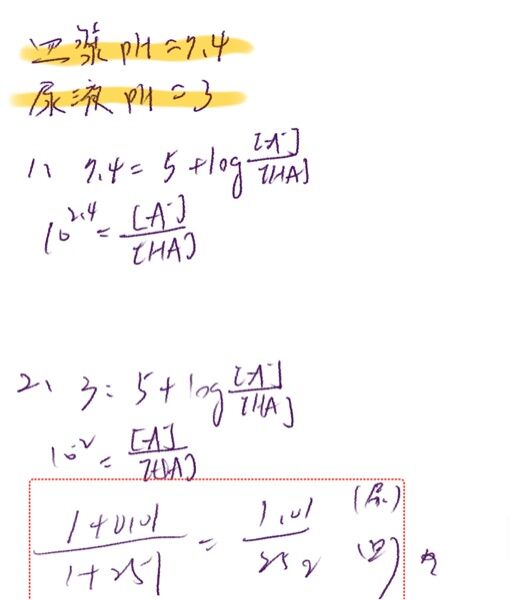 血浆 pH = 7.4
尿液 pH = 3
1、 7.4 = 5 + log [A⁻]/[HA]
10^2.4 = [A⁻]/[HA]
2、 3 = 5 + log [A⁻]/[HA]
10^-2 = [A]/[HA]
(1+0.01)/(1+251) = 1.01/252 (尿) (血)